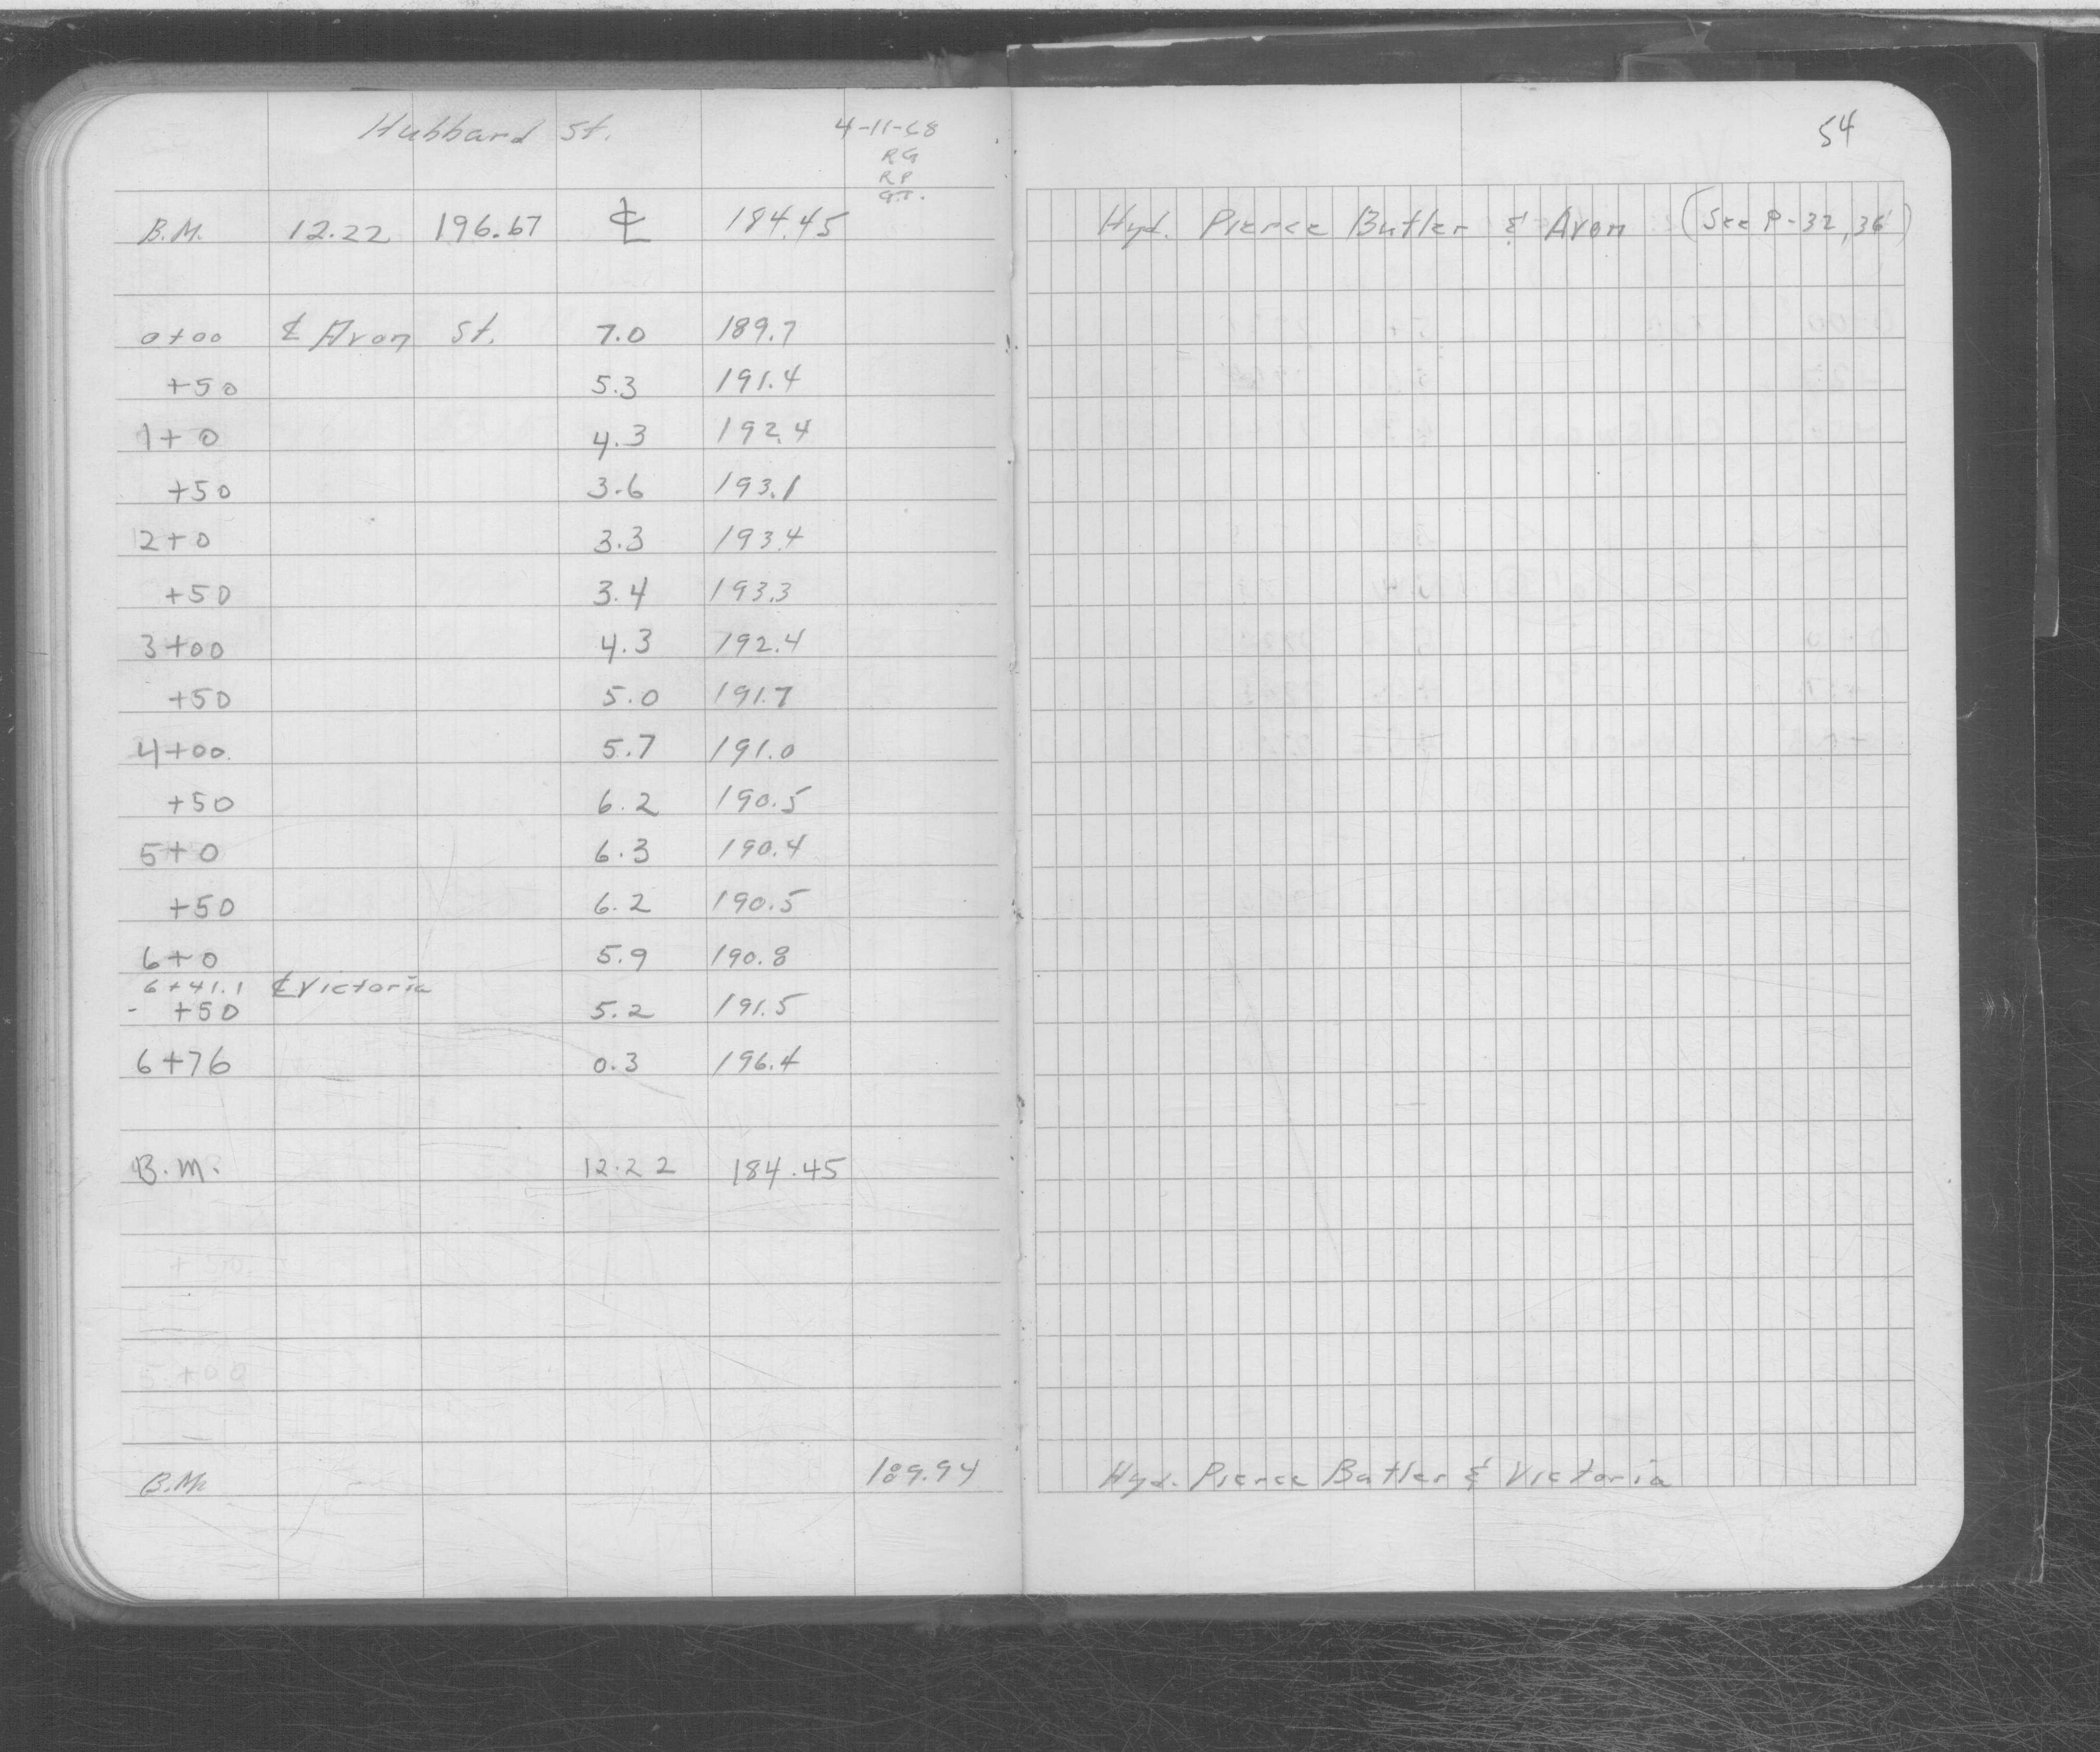 Hubbard St. 4-11-68
RG
RP
G.T.
54
B.M. 12.22 196.67 ℄ 184.45 Hyd. Pierce Butler & Avon (See P-32, 36)
0+00 ℄ Avon St. 7.0 189.7
+50 5.3 191.4
1+0 4.3 192.4
+50 3.6 193.1
2+0 3.3 193.4
+50 3.4 193.3
3+00 4.3 192.4
+50 5.0 191.7
4+00 5.7 191.0
+50 6.2 190.5
5+0 6.3 190.4
+50 6.2 190.5
6+0 5.9 190.8
6+41.1 ℄ Victoria
- +50 5.2 191.5
6+76 0.3 196.4
B.M. 12.22 184.45
+50
5+00
B.M. 189.94 Hyd. Pierce Butler & Victoria